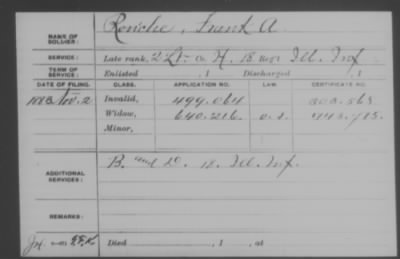 NAME OF SOLDIER: Frank A.
SERVICE: Late rank, 2 Lt. Co. H, 18 Reg't Ill. Inf.
TERM OF SERVICE: Enlisted , 1 Discharged , 1
DATE OF FILING. CLASS. APPLICATION NO. LAW. CERTIFICATE NO.
1883 Nov. 2 Invalid, 499.064
Widow, 640.216
Minor,
ADDITIONAL SERVICES: B. and D. 18. Ill. Inf.
REMARKS:
Died , 1 , at